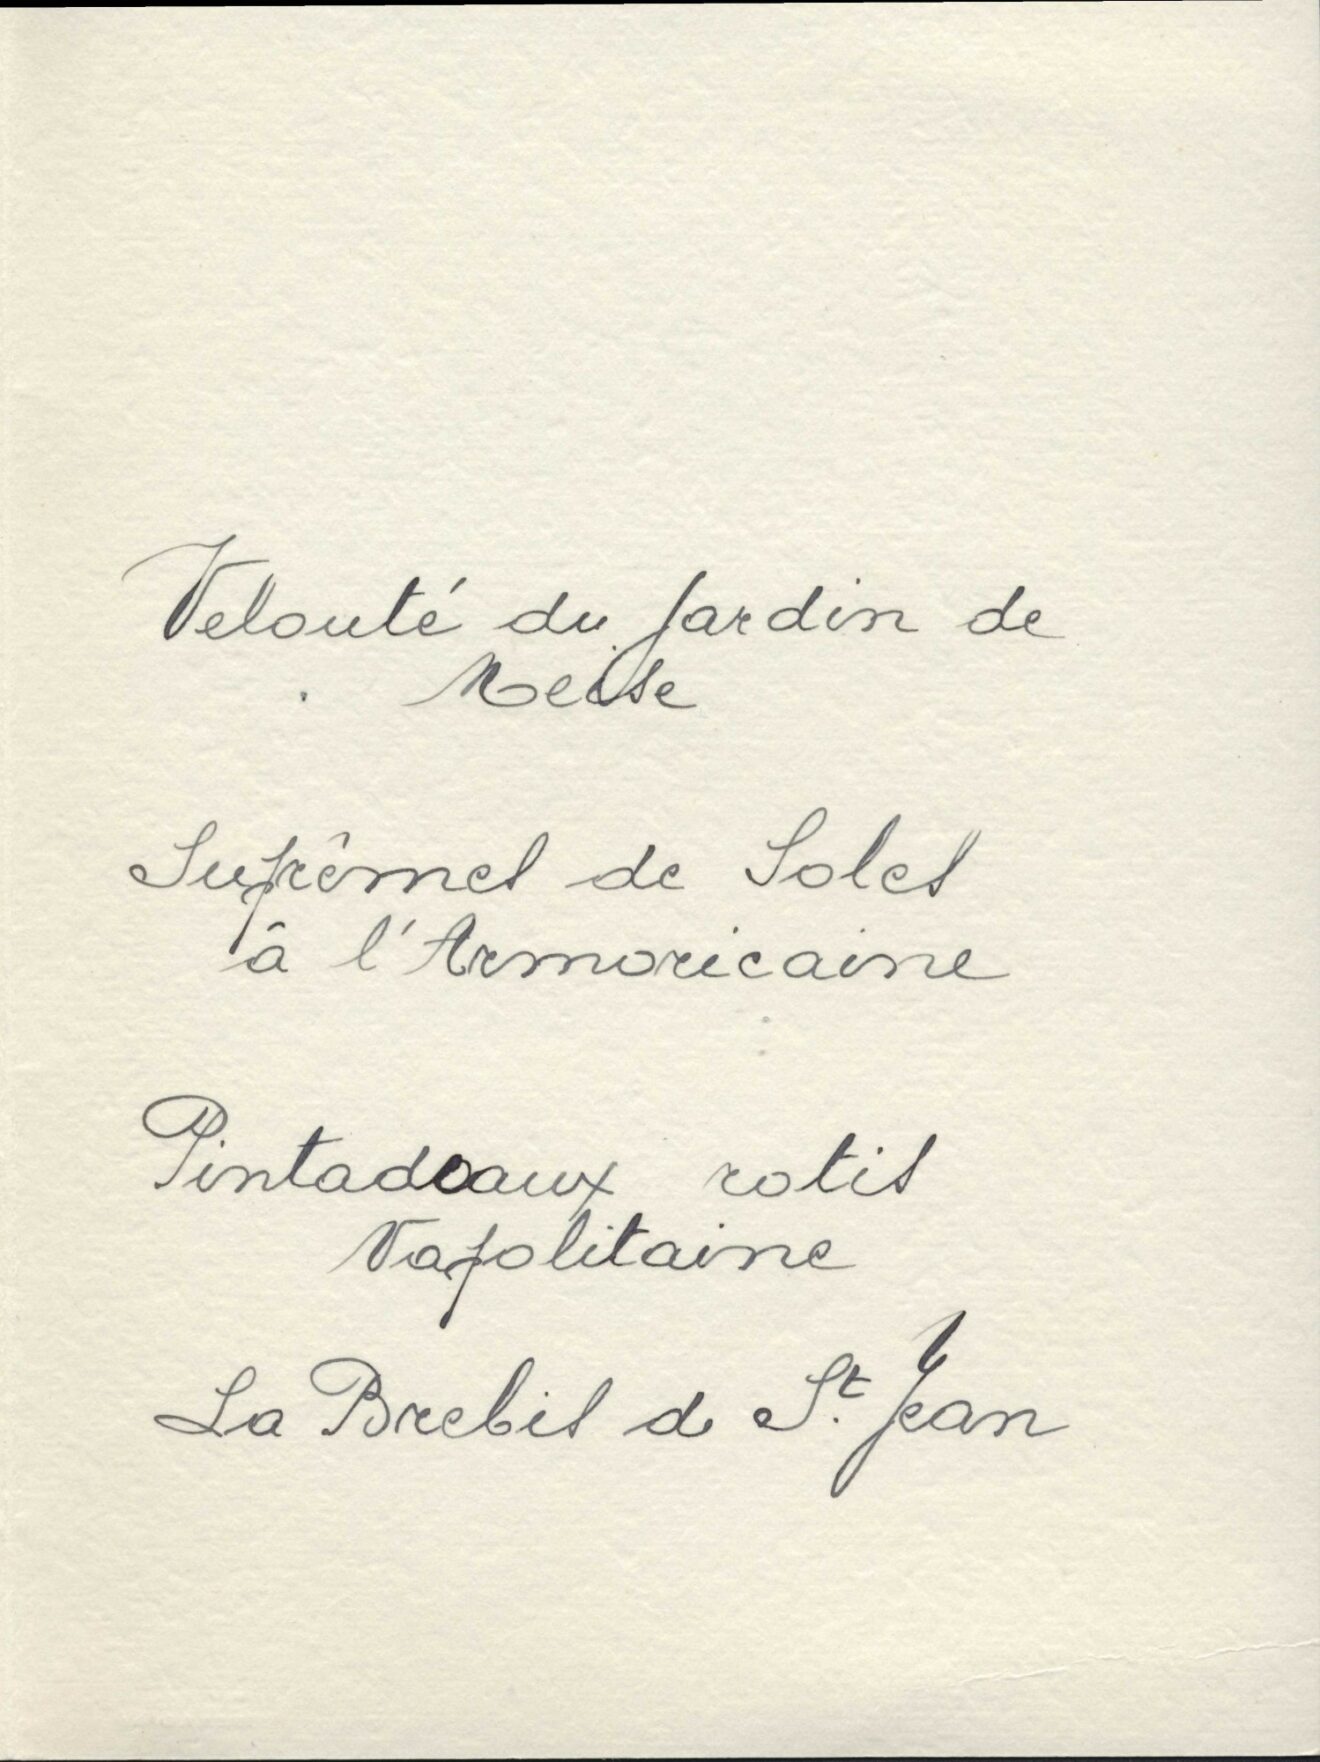 Velouté du Jardin de
Meise
Suprêmes de Soles
à l'Armoricaine
Pintadeaux rotis
Napolitaine
La Brebis de St. Jean